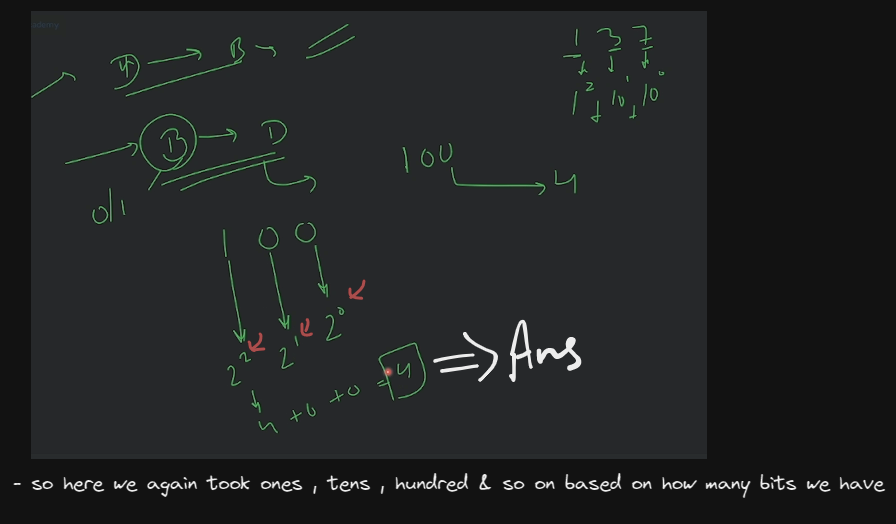 D → B →
1 3 7
1² 10¹ 10⁰
B → D
0/1
100 → 4
1 0 0
2² 2¹ 2⁰
4 + 0 + 0 = 4 => Ans
- so here we again took ones , tens , hundred & so on based on how many bits we have